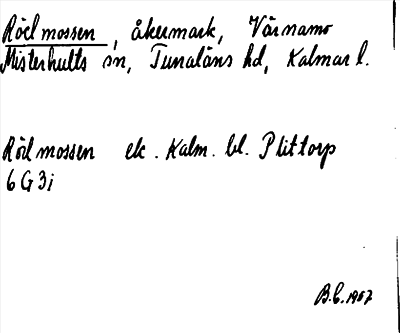 Röd mossen, åkermark, Värnamo
Misterhults sn, Tunaläns hd, Kalmar l.
Röd mossen ek. Kalm. bl. Plittorp
6G3i
B.C. 1957